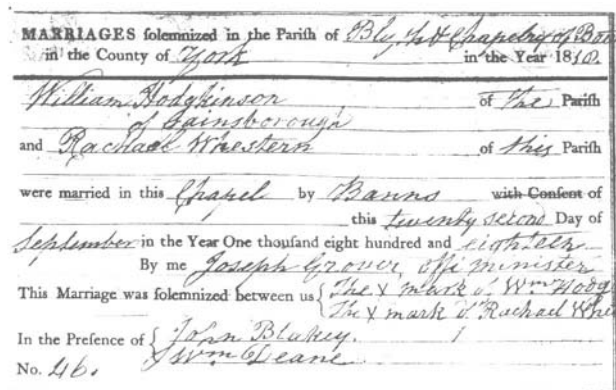 MARRIAGES solemnized in the Parish of Blyth & Chapelry of
in the County of York in the Year 1818.
William Hodgkinson of the Parish
of Gainsborough
and Rachael Whestern of this Parish
were married in this Chapel by Banns with Consent of
this twenty second Day of
September in the Year One thousand eight hundred and eighteen
By me Joseph Grover, Offi minister
This Marriage was solemnized between us { The X mark of Wm Hodg
The X mark of Rachael Whe
In the Presence of { John Blakey.
Wm Deane.
No. 46.